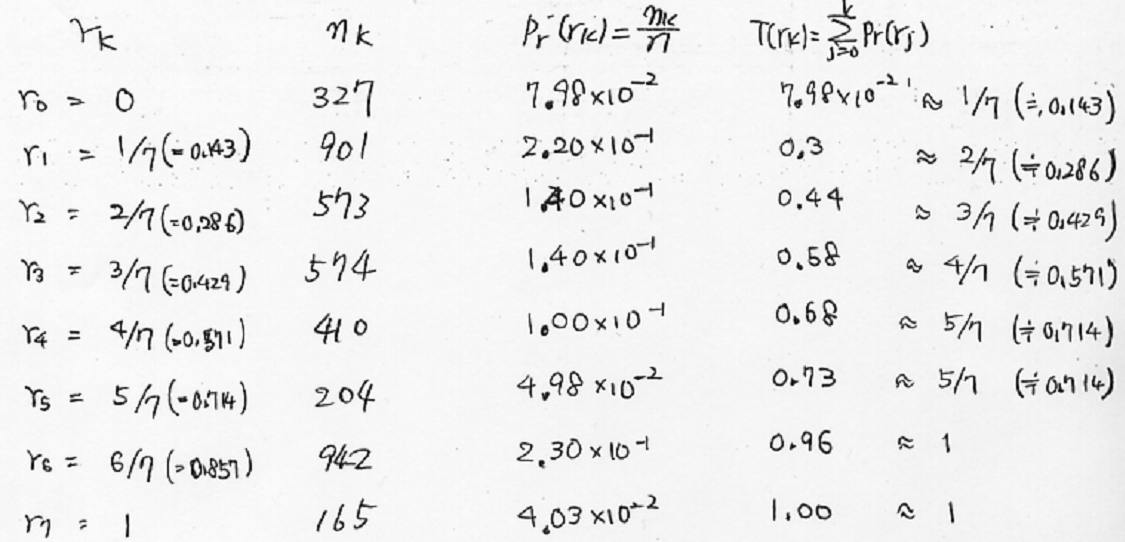 rₖ nₖ Pr(rₖ)=nₖ/n T(rₖ)=∑ⱼ₌₀ᵏ Pr(rⱼ)
r₀ = 0 327 7.98×10⁻² 7.98×10⁻² ≈ 1/7 (≒0.143)
r₁ = 1/7(=0.143) 901 2.20×10⁻¹ 0.3 ≈ 2/7 (≒0.286)
r₂ = 2/7(=0.286) 573 1.40×10⁻¹ 0.44 ≈ 3/7 (≒0.429)
r₃ = 3/7(=0.429) 574 1.40×10⁻¹ 0.58 ≈ 4/7 (≒0.571)
r₄ = 4/7(=0.571) 410 1.00×10⁻¹ 0.68 ≈ 5/7 (≒0.714)
r₅ = 5/7(=0.714) 204 4.98×10⁻² 0.73 ≈ 5/7 (≒0.714)
r₆ = 6/7(=0.857) 942 2.30×10⁻¹ 0.96 ≈ 1
r₇ = 1 165 4.03×10⁻² 1.00 ≈ 1